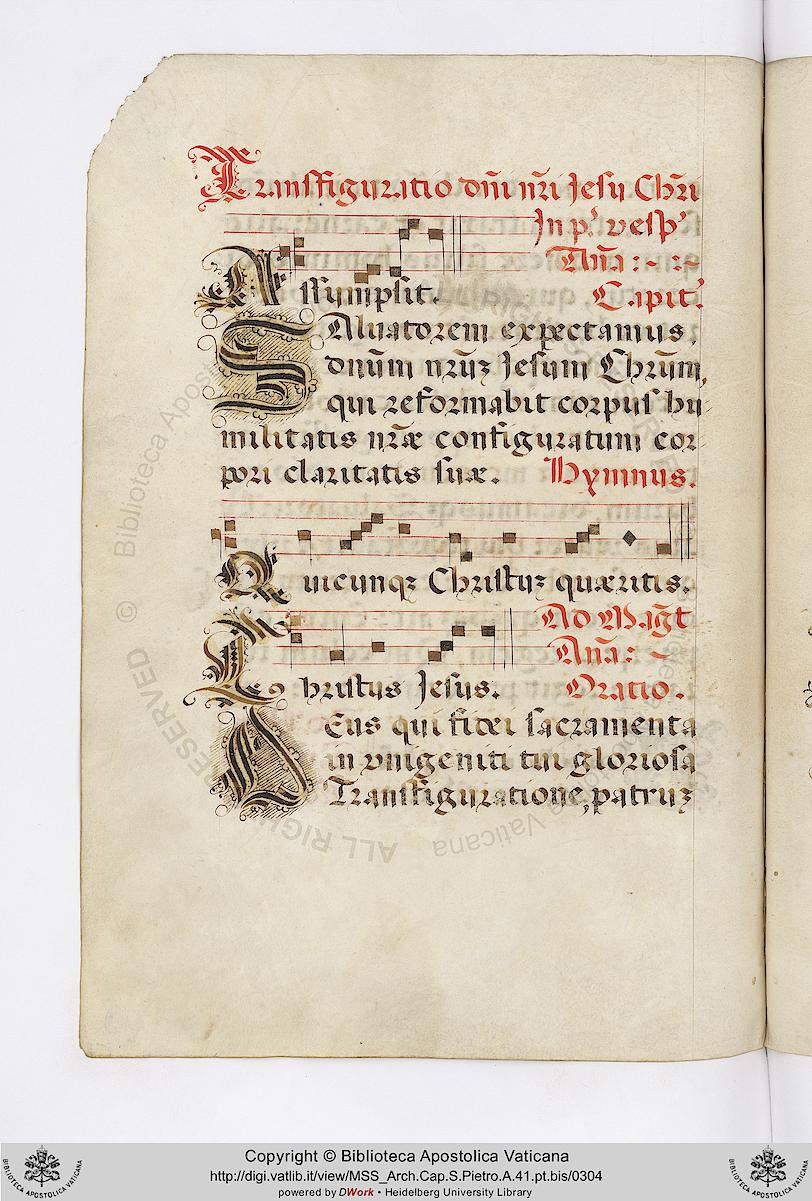 Transfiguratio dñi nr̃i Jesu Chr̃i
In p.ª vesp.ª
Añã:
Assumpsit. Capit.
SAluatorem expectamus,
dnũm nrũʒ Jesum Chrũm,
qui reformabit corpus hu
militatis nr̃æ configuratum cor
pori claritatis suæ. Hymnus.
Quicunqʒ Christuʒ quæritis.
Ad Mag̃t
Añã:
Christus Jesus. Oratio.
DEus qui fidei sacramenta
in vnigeniti tui gloriosa
Transfiguratione, patruʒ
© Biblioteca Apostolica Vaticana
ALL RIGHTS RESERVED
Copyright © Biblioteca Apostolica Vaticana
http://digi.vatlib.it/view/MSS_Arch.Cap.S.Pietro.A.41.pt.bis/0304
powered by DWork • Heidelberg University Library
BIBLIOTECA APOSTOLICA VATICANA
BIBLIOTECA APOSTOLICA VATICANA